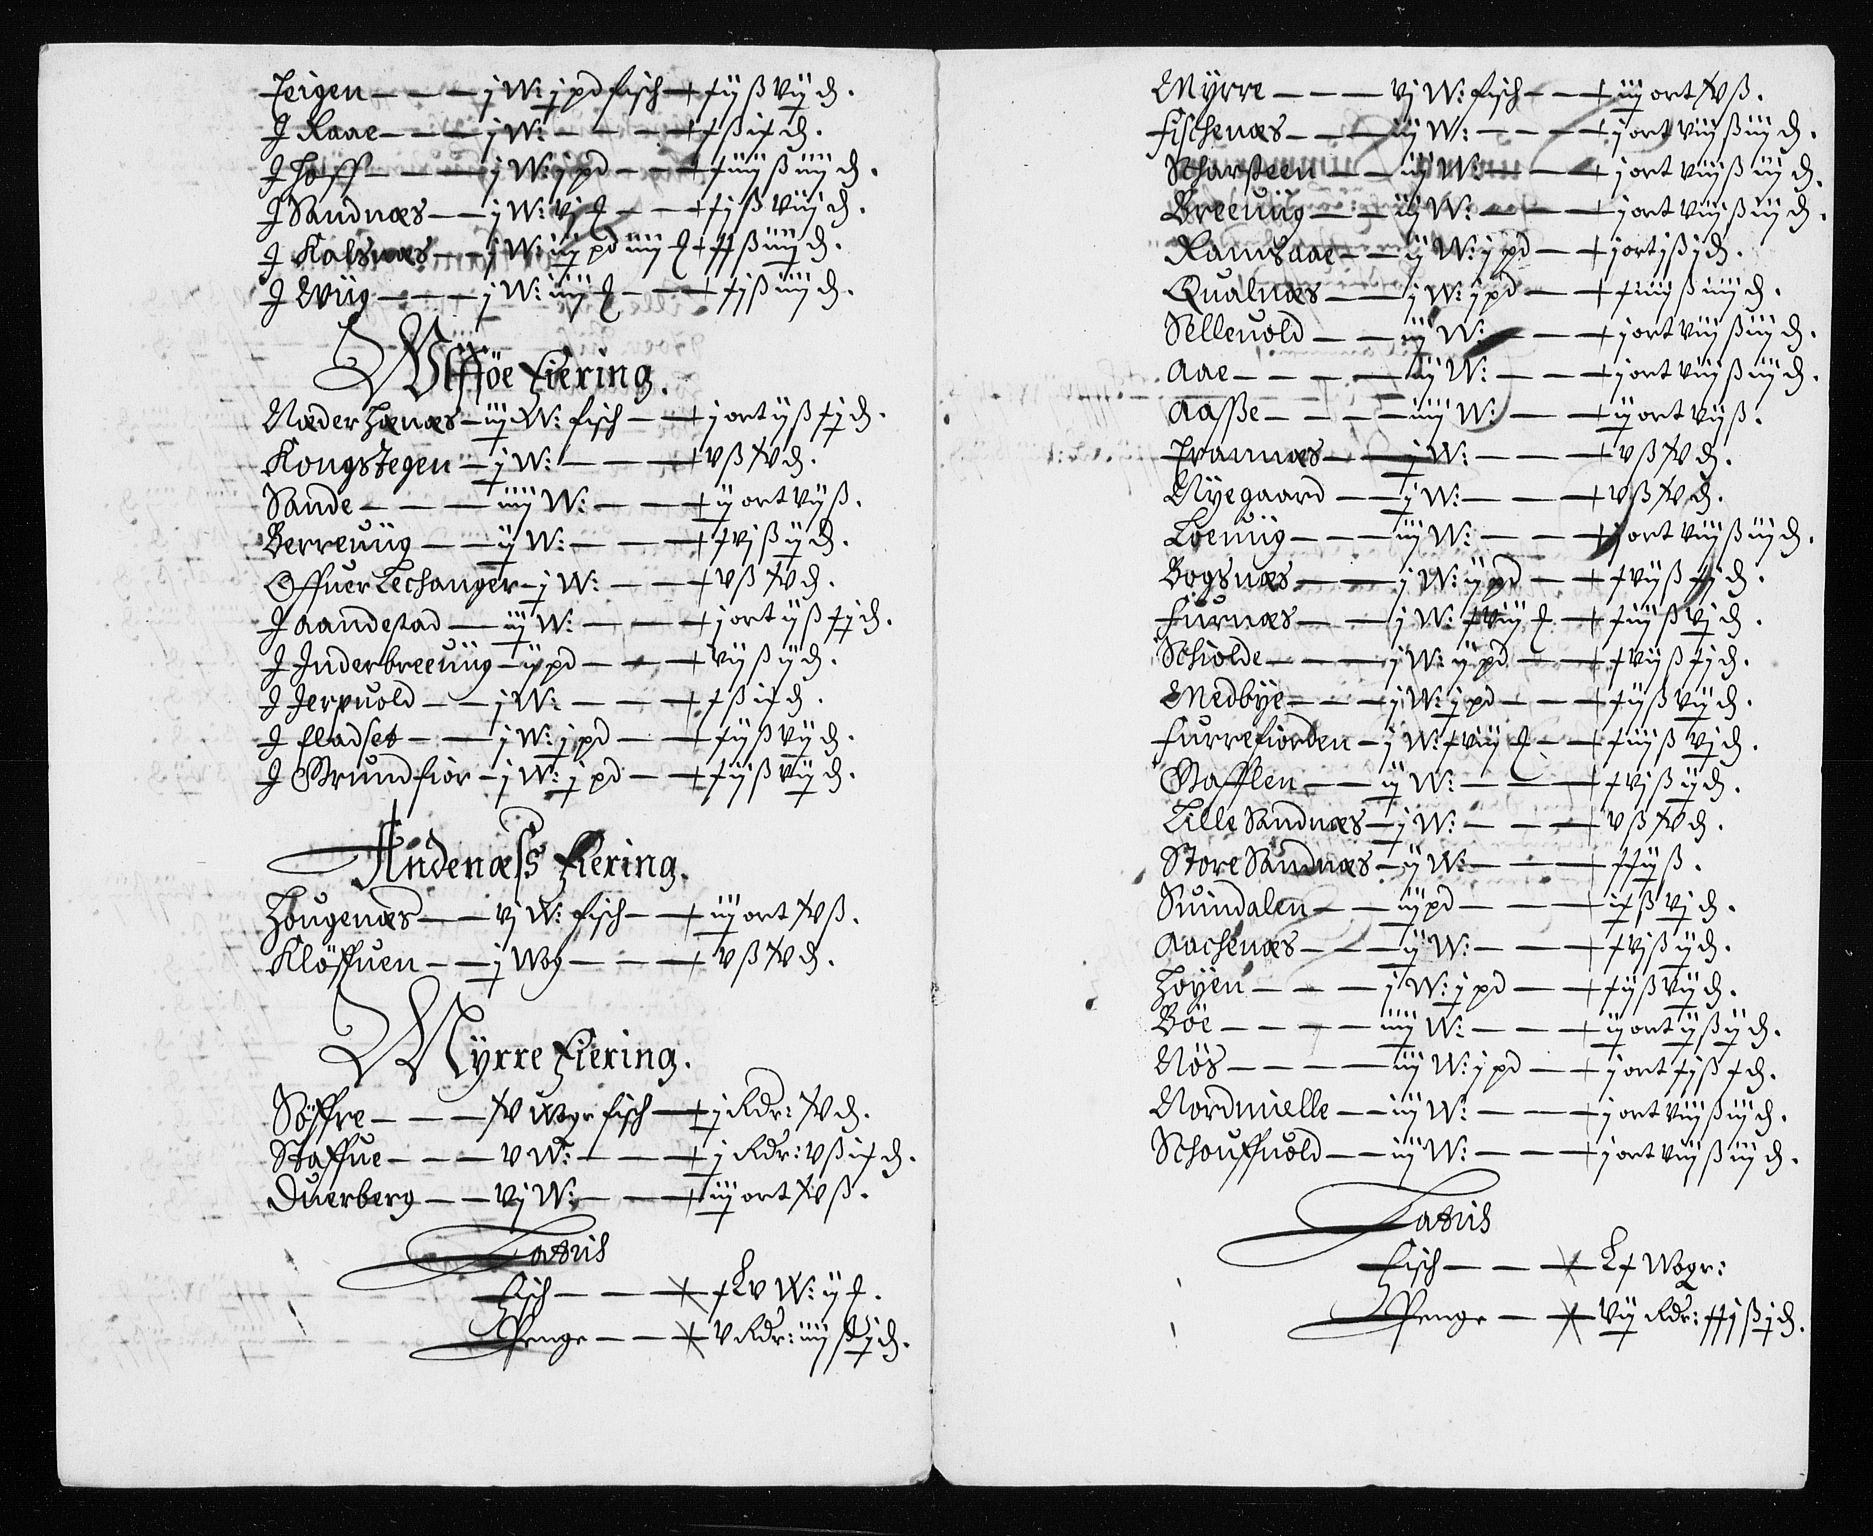 Teigen — — — j W: j pd fisch — xij ß vij d.
J Raae — — — j W: — — — — x ß ix d.
J Hoff — — — j W: j pd — — xiiij ß iiij d.
J Sandnæs — — j W: vj ℔ — — xj ß viij d.
J Kalsnæs — — j W: iij pd iiij ℔ xx ß iiij d.
J Wiig — — — j W: iiij ℔ — — xj ß iiij d.
Ulfföe Fiering.
Næder Hænæs — iij W: fisch — j ort ij ß xj d.
Kongs Tegen — j W: — — — v ß xv d.
Sande — — — iiij W: — — — ij ort vij ß.
Berreuiig — — ij W: — — — xvj ß ij d.
Offuer Lechanger — j W: — — v ß xv d.
J Aandestad — iij W: — — — j ort ij ß xj d.
J Inderbreeuiig — ij pd — — — vij ß ij d.
J Jerpuold — — j W: — — — x ß ix d.
J fladset — — j W: j pd — — xij ß vij d.
J Grundfior — j W: j pd — — xij ß vij d.
Andenæss Fiering.
Hougenæs — — vj W: fisch — iij ort xv ß.
Klöffuen — — j Wog — — — v ß xv d.
Myrre Fiering.
Söffre — — — xv Wogr fisch — j Rdr: xv d.
Staffue — — — v W: — — — j Rdr: v ß ix d.
Duerberg — — vj W: — — — iij ort xv ß.
Latus
Fisch — — — x Lv W: ij ℔.
Penge — — — v Rdr: iiij ß j d.
Myrre — — — vj W: fisch — — iij ort xv ß.
Fischenæs — — iij W: — — — j ort viij ß iij d.
Scharsteen — — iij W: — — — j ort viij ß iij d.
Breeuiig — — iij W: — — — j ort viij ß iij d.
Ramsaae — — ij W: j pd — j ort j ß j d.
Qualnæs — — j W: j pd — xiiij ß iiij d.
Selleuold — — iij W: — — — j ort viij ß iij d.
Aae — — — — iij W: — — — j ort viij ß iij d.
Aasse — — — — iiij W: — — — ij ort vij ß.
Trannæs — — j W: — — — v ß xv d.
Nyegaard — — j W: — — — v ß xv d.
Loeuiig — — — iij W: — — — j ort viij ß iij d.
Bogsnæs — — j W: ij pd — — xvij ß xj d.
Furnæs — — j W: xviij ℔ — xiij ß vj d.
Schiolde — — — j W: ij pd — — xvij ß xj d.
Medbye — — — j W: j pd — — xij ß vij d.
Furrefiorden — j W: xviij ℔ — — xiij ß vj d.
Stafflen — — ij W: — — — xvj ß ij d.
Lille Sandnæs — j W: — — — v ß xv d.
Store Sandnæs — ij W: — — — xxij ß.
Suindalen — — iij pd — — — ix ß vj d.
Aachenæs — — — ij W: — — — xvj ß ij d.
Höyen — — — j W: j pd — — xij ß vij d.
Böe — — — — iiij W: — — — ij ort ij ß ij d.
Nös — — — — iij W: j pd — — j ort xj ß x d.
Nordmielle — — iij W: — — — j ort viij ß iij d.
Schouffuold — — iij W: — — — j ort viij ß iij d.
Latus
Fisch — — — Lx Wogr:
Penge — — vij Rdr: xxj ß j d.